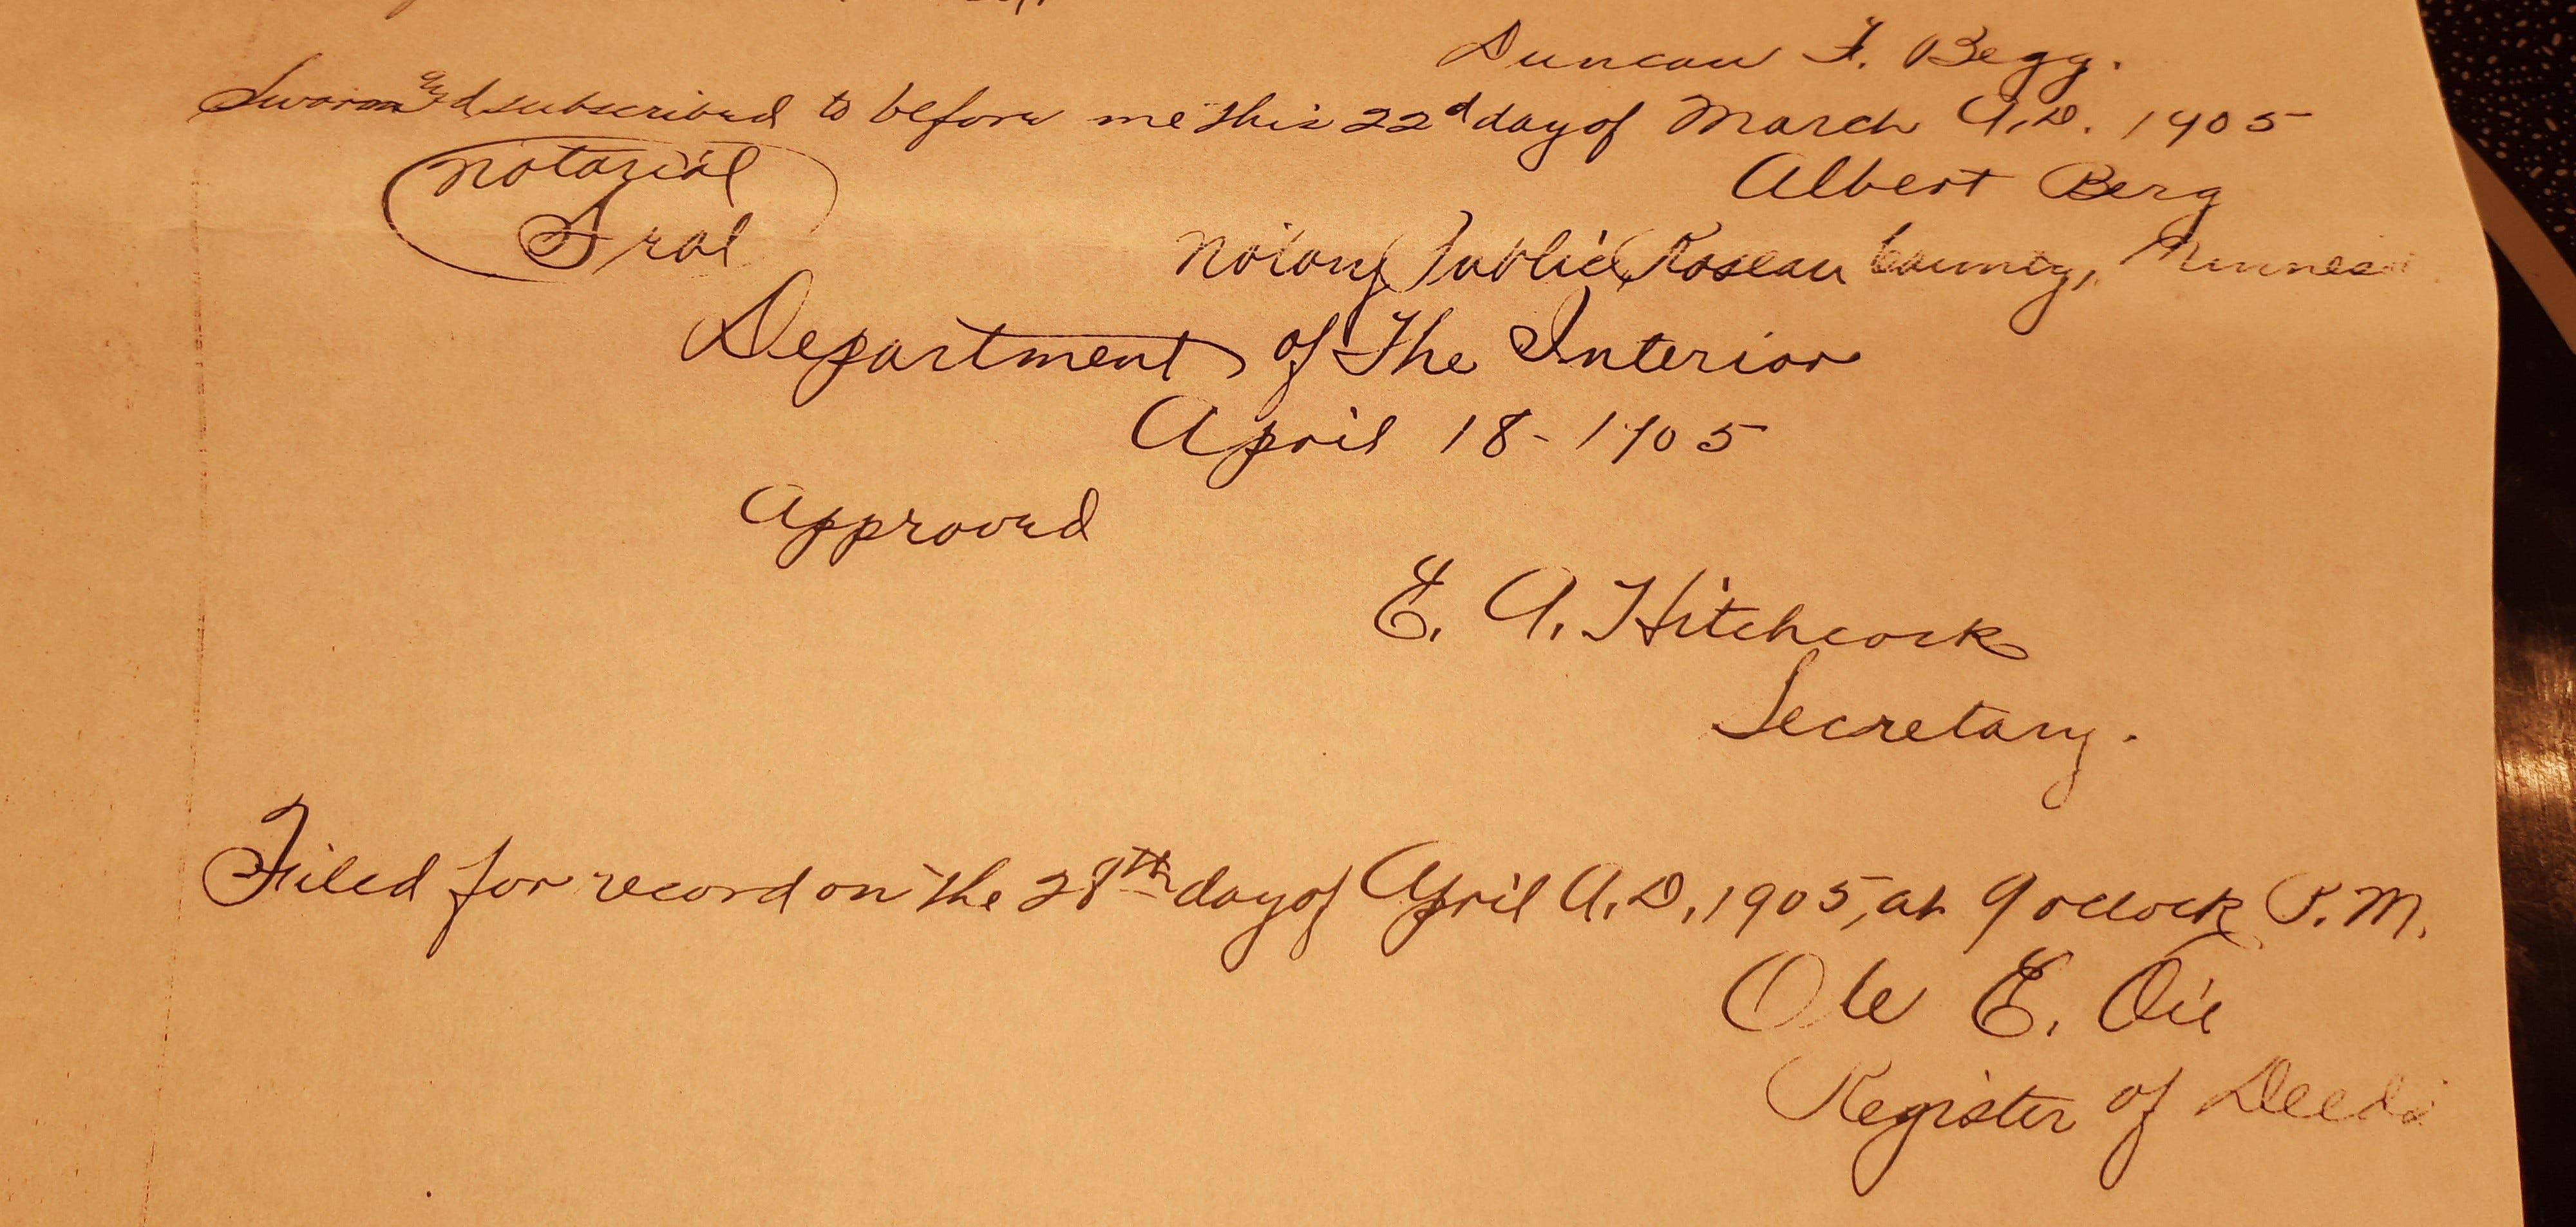 Duncan F. Begg.
Sworn and subscribed to before me this 22d day of March A.D. 1905
Notarial
Seal
Albert Berg
Notary Public, Roseau County, Minnes
Department of The Interior
April 18-1905
Approved
E. A. Hitchcock
Secretary.
Filed for record on the 28th day of April A.D. 1905, at 9 oclock P.M.
Ole E. Oie
Register of Deeds